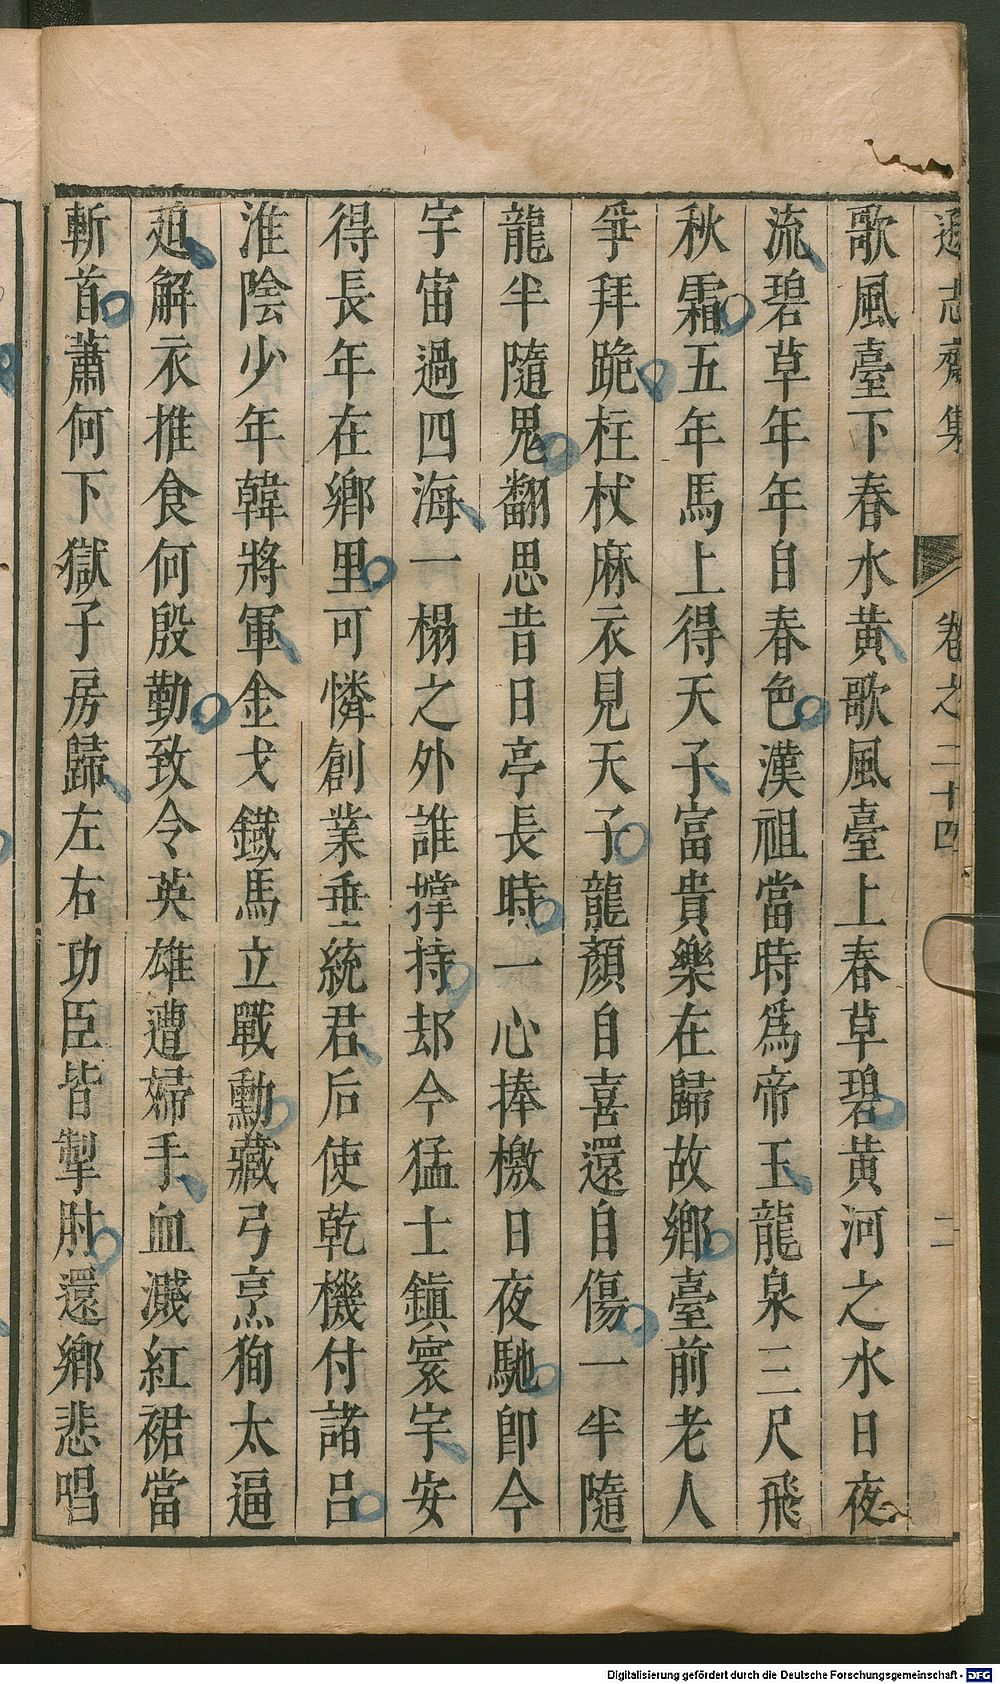 遜志齋集 卷之二十四 二
歌風臺下春水黃歌風臺上春草碧黃河之水日夜
流碧草年年自春色漢祖當時爲帝王龍泉三尺飛
秋霜五年馬上得天子富貴樂在歸故鄉臺前老人
爭拜跪柱杖麻衣見天子龍顏自喜還自傷一半隨
龍半隨鬼翻思昔日亭長時一心捧檄日夜馳卽今
宇宙過四海一榻之外誰撑持却今猛士鎭寰宇安
得長年在鄉里可憐創業垂統君后使乾機付諸呂
淮陰少年韓將軍金戈鐵馬立戰勳藏弓烹狗太逼
廹解衣推食何殷勤致令英雄遭婦手血濺紅裙當
斬首蕭何下獄子房歸左右功臣皆掣肘還鄉悲唱
Digitalisierung gefördert durch die Deutsche Forschungsgemeinschaft - DFG